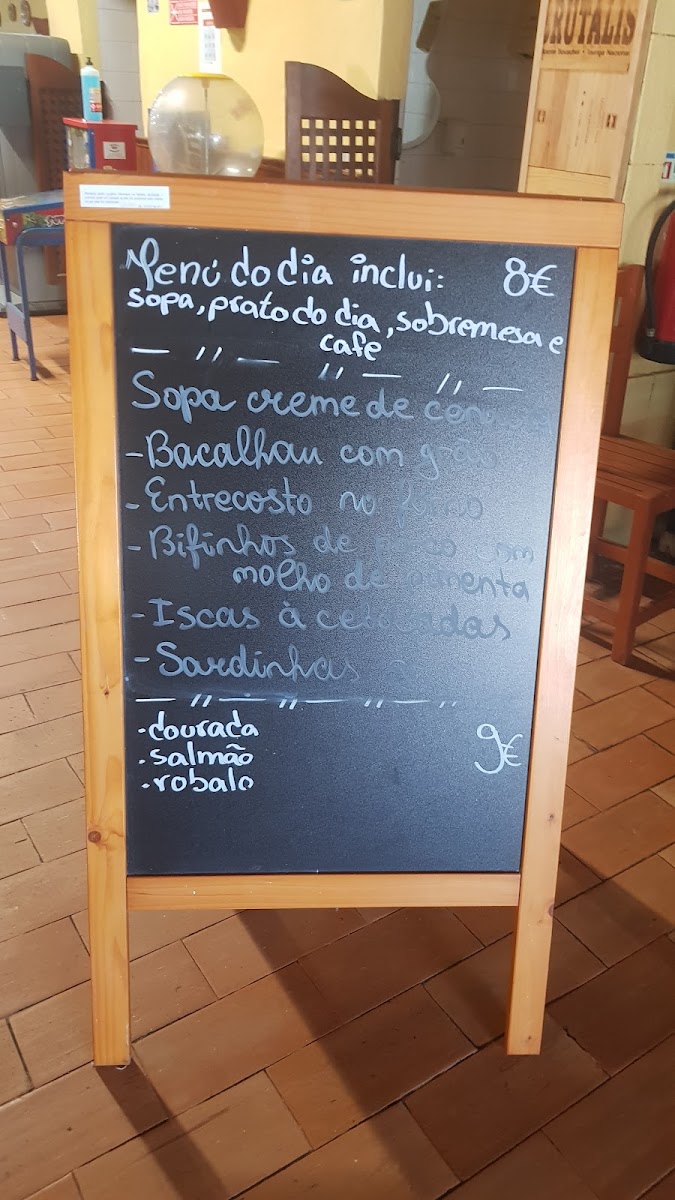 BRUTALIS
Menú do dia inclui: 8€
sopa, prato do dia, sobremesa e
cafe
Sopa creme de
- Bacalhau com grão
- Entrecosto no forno
- Bifinhos de porco com
molho de pimenta
- Iscas à ceboladas
- Sardinhas
- dourada
. salmão 9€
. robalo